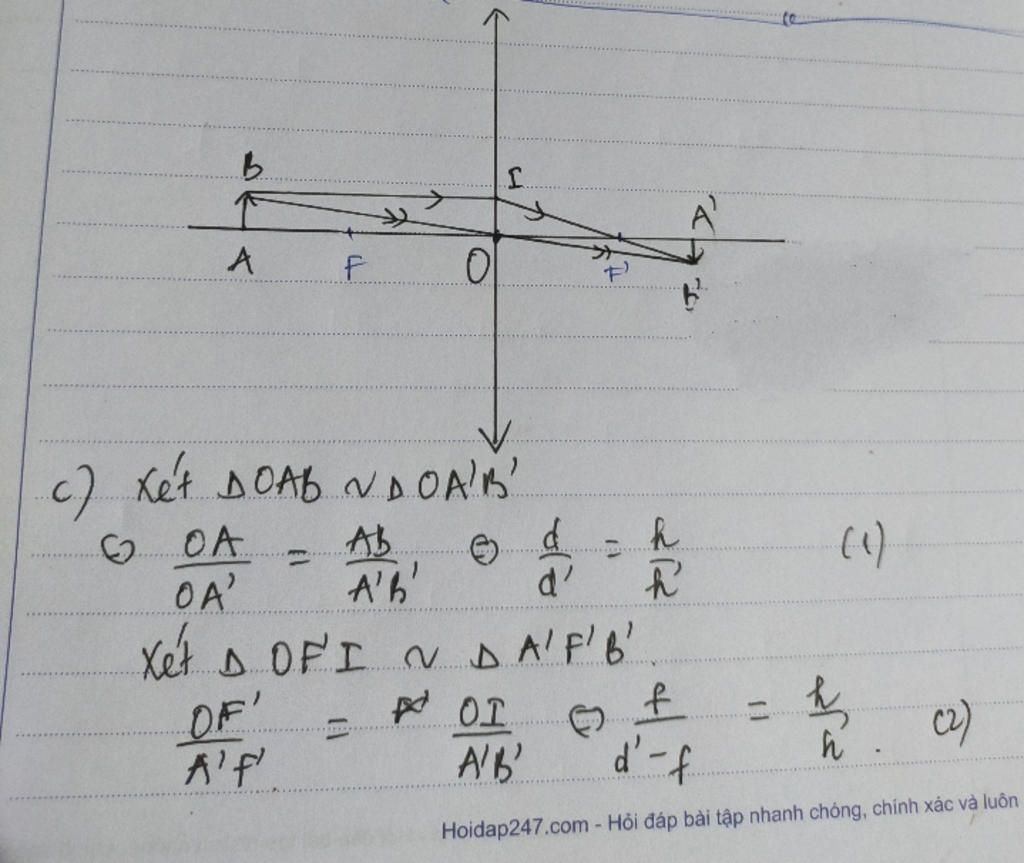 B
I
A'
A
F
O
F'
B'
c) Xét Δ OAB ∽ Δ OA'B'
⇔ OA/OA' = AB/A'B' ⇔ d/d' = h/h' (1)
Xét Δ OF'I ∽ Δ A'F'B'
OF'/A'F' = OI/A'B' ⇔ f/d'-f = h/h'. (2)
Hoidap247.com - Hỏi đáp bài tập nhanh chóng, chính xác và luôn